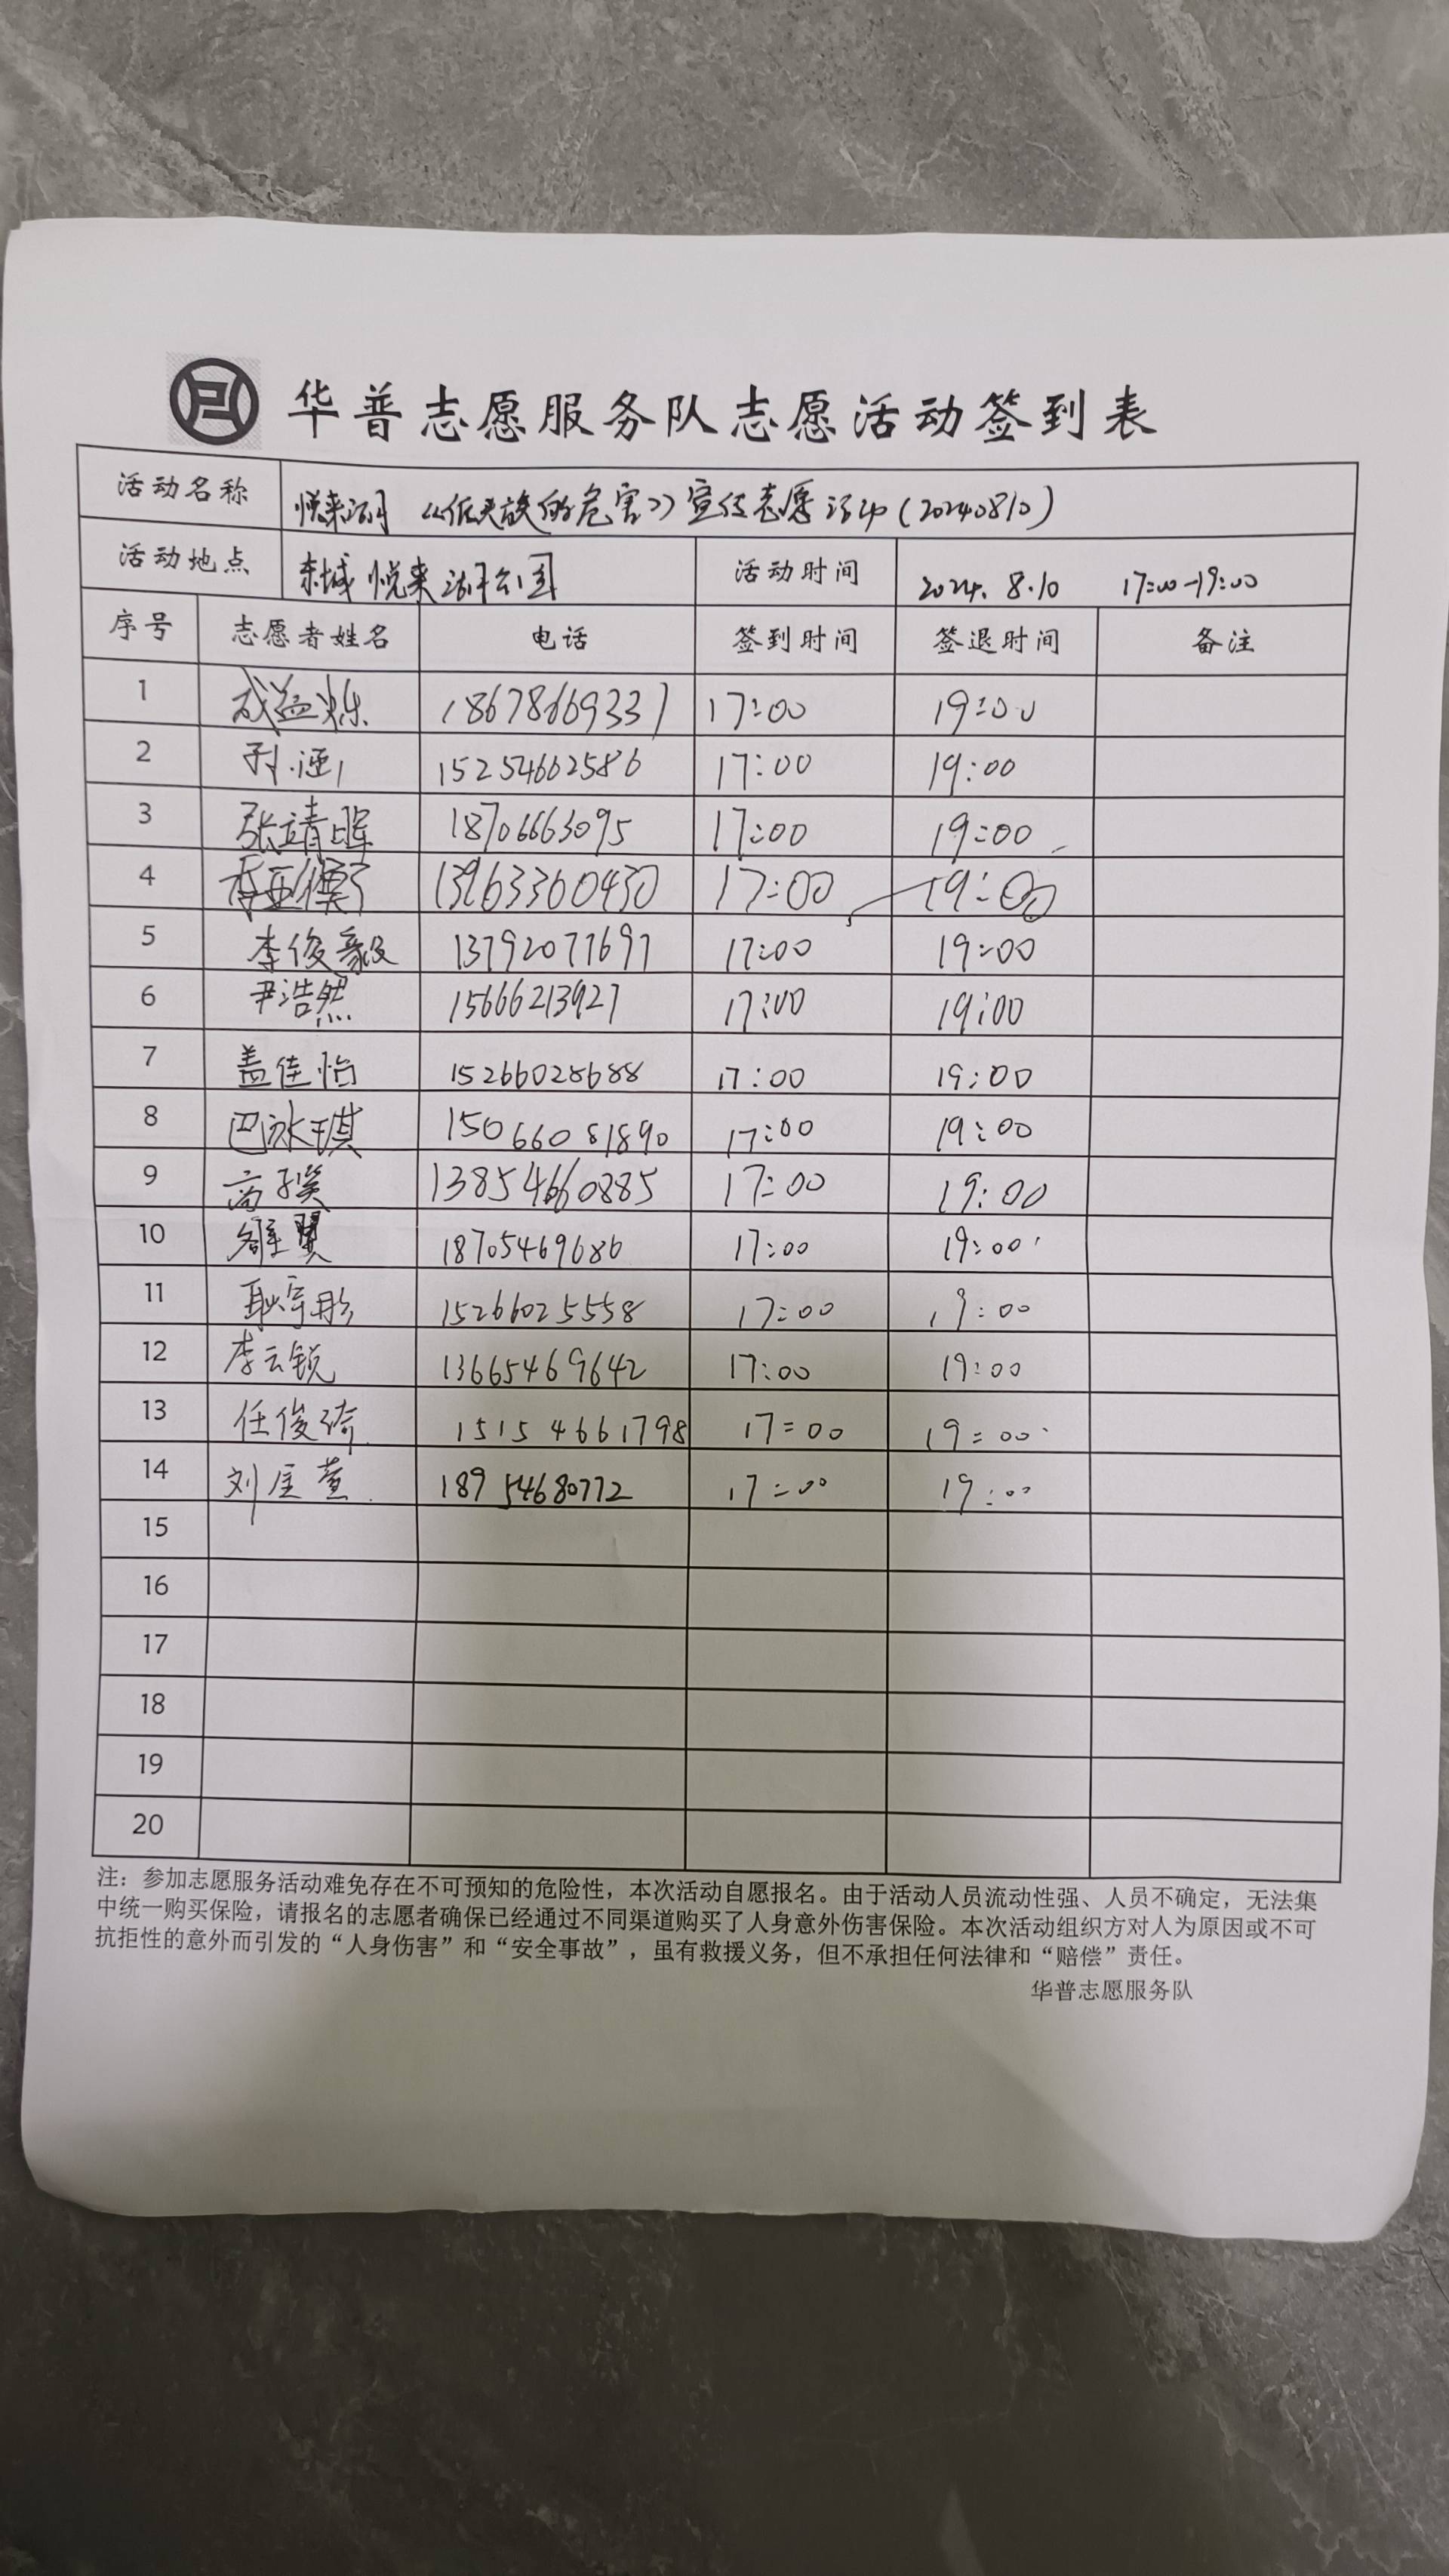 华普志愿服务队志愿活动签到表
活动名称 悦来湖《低头族的危害》宣传志愿活动(20240810)
活动地点 东城悦来湖公园 活动时间 2024.8.10 17:00-19:00
序号 志愿者姓名 电话 签到时间 签退时间 备注
1 成益烁 18678669337 17:00 19:00
2 15254662586 17:00 19:00
3 张靖晖 18706663095 17:00 19:00
4 17:00 19:00
5 李俊毅 13792077697 17:00 19:00
6 尹浩然 15666213927 17:00 19:00
7 盖佳怡 15266028688 17:00 19:00
8 巴泳琪 15066081890 17:00 19:00
9 13854660885 17:00 19:00
10 18705469686 17:00 19:00
11 耿宇彤 15266025558 17:00 19:00
12 李云锐 13665469642 17:00 19:00
13 任俊琦 15154661798 17=00 19=00
14 18954680772 17=00 19:00
15
16
17
18
19
20
注：参加志愿服务活动难免存在不可预知的危险性，本次活动自愿报名。由于活动人员流动性强、人员不确定，无法集
中统一购买保险，请报名的志愿者确保已经通过不同渠道购买了人身意外伤害保险。本次活动组织方对人为原因或不可
抗拒性的意外而引发的“人身伤害”和“安全事故”，虽有救援义务，但不承担任何法律和“赔偿”责任。
华普志愿服务队